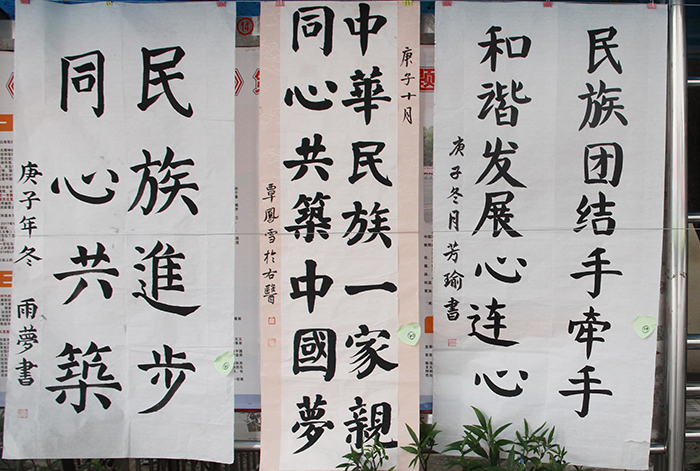 民族团结手牵手
和谐发展心连心
庚子冬月芳瑜書
庚子十月
中華民族一家親
同心共築中國夢
覃鳳雪於右醫
民族進步
同心共築
庚子年冬 雨夢書